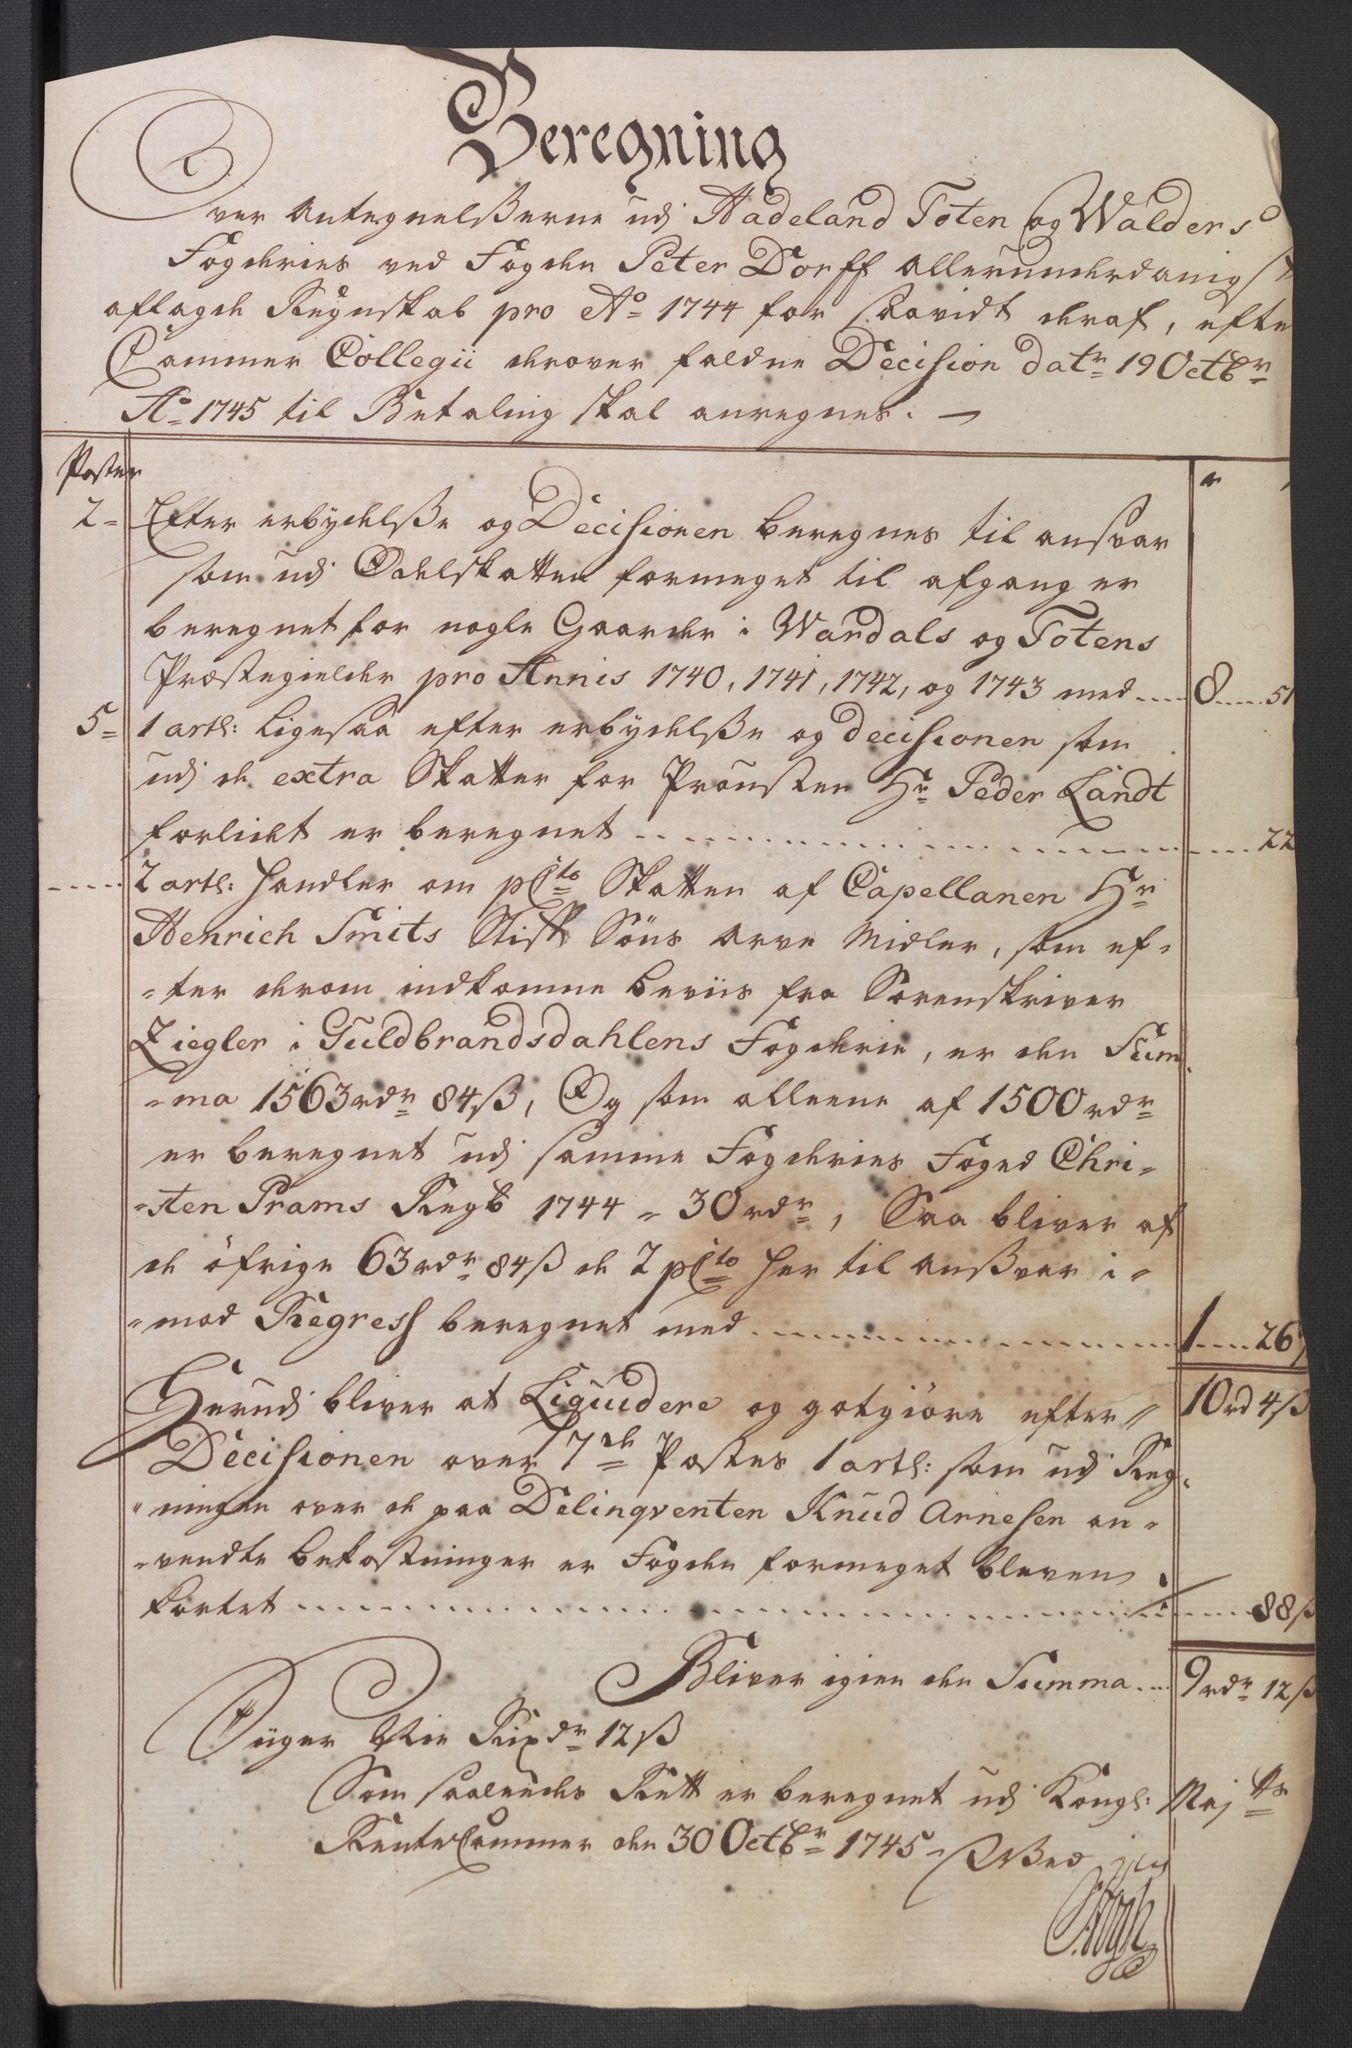 Beregning
Over Antegnelßerne udj Hadeland Toten og Walders
Fogderies ved Fogden Peter Dorff allerunderdanigst
aflagde Regnskab pro Ao 1744 for saavidt deraf, efte
Cammer Collegii derover faldne Decision datr 19 Octbr
Ao 1745 til Betaling skal anregnes.
Poster
2= Efter erbydelße og Decisionen beregnes til ansvar
som udj Odelskatten formeget til afgang er
beregnet for nogle Gaarder i Wardals og Totens
Præstegielder pro Annis 1740, 1741, 1742, og 1743 med .... 8 .... 51
5= 1 artl: Ligesaa efter erbydelße og decisionen som
udj de extra Skatter for Prousten Hr Peder Landt
forlidet er beregnet .... 22
2 artl: Handler om pCto Skatten af Capellanen Hr
Henrich Smits Stiff Söns Arve Midler, som ef-
-ter derom indkomne beviis fra Sorenskriver
Ziegler i Guldbrandsdahlens Fogderie, er den Sum-
-ma 1563rdr 84ß, Og som alleene af 1500rdr
er beregnet udj samme Fogderies Foged Chri-
-sten Prams Regsb 1744 = 30rdr, Saa bliver af
de öfrige 63rdr 84ß de 2 pCto her til Anßvar i-
-mod Regress beregnet med .... 1 .... 26
10rd 4ß
Herudj bliver at Liquidere og gotgiöre efter
Decisionen over 7de Postes 1 artl: som udj Reg-
-ningen over de paa Delinqventen Knud Arnesen an-
-vendte bekostninger er Fogden formeget bleven
kortet .... 88ß
Bliver igien den Summa .... 9rdr 12ß
Siiger Nie Rixdr 12ß
Som saaledes Rett er beregnet udj Kongl: Maj ts
RenteCammer den 30 Octbr 1745